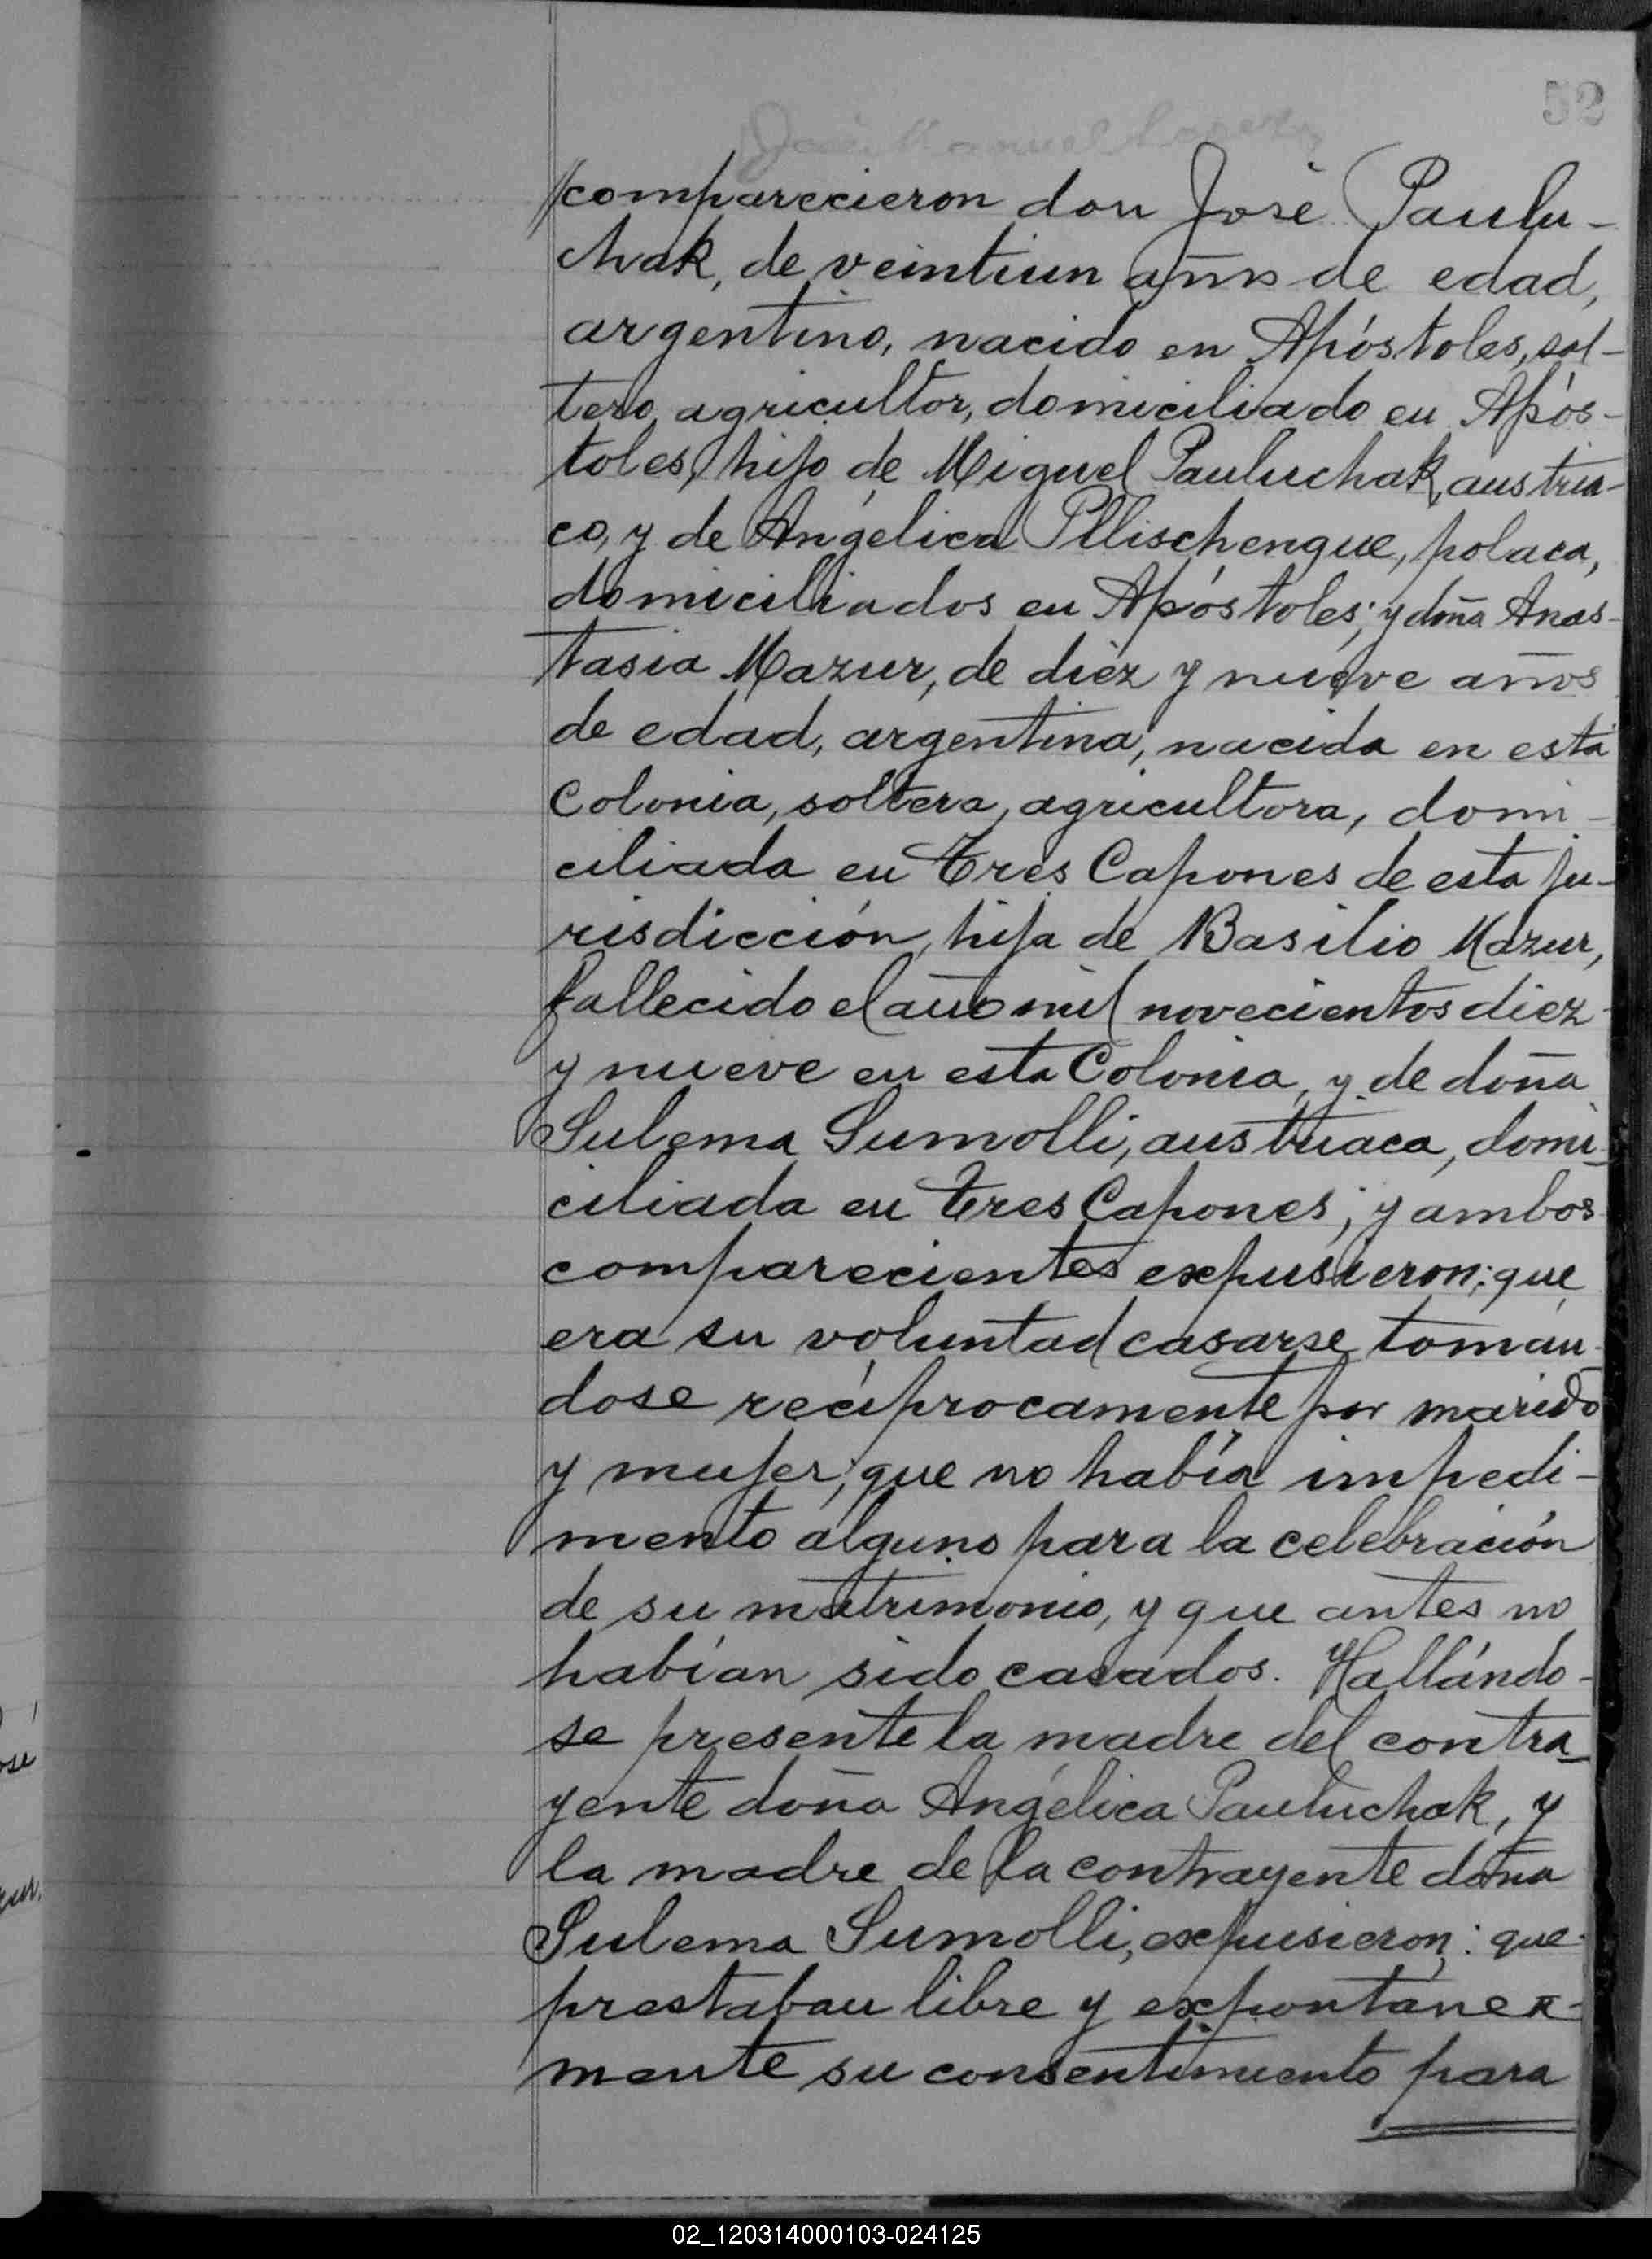 52
//comparecieron don José Paulu-
chak, de veintiun años de edad,
argentino, nacido en Apóstoles, sol-
tero, agricultor, domiciliado en Após-
toles, hijo de Miguel Pauluchak, austria-
co, y de Angélica Pllischengue, polaca,
domiciliados en Apóstoles; y doña Anas-
tasia Mazur, de diez y nueve años
de edad, argentina, nacida en esta
Colonia, soltera, agricultora, domi-
ciliada en Tres Capones de esta ju-
risdicción, hija de Basilio Mazur,
fallecido el año mil novecientos diez
y nueve en esta Colonia, y de doña
Sulema Sumolli, austriaca, domi-
ciliada en Tres Capones; y ambos
comparecientes expusieron: que
era su voluntad casarse toman-
dose recíprocamente por marido
y mujer; que no había impedi-
mento alguno para la celebración
de su matrimonio, y que antes no
habían sido casados. Hallándo-
se presente la madre del contra-
yente doña Angélica Pauluchak, y
la madre de la contrayente doña
Sulema Sumolli, expusieron: que
prestaban libre y expontanea-
mente su consentimiento para
02_120314000103-024125